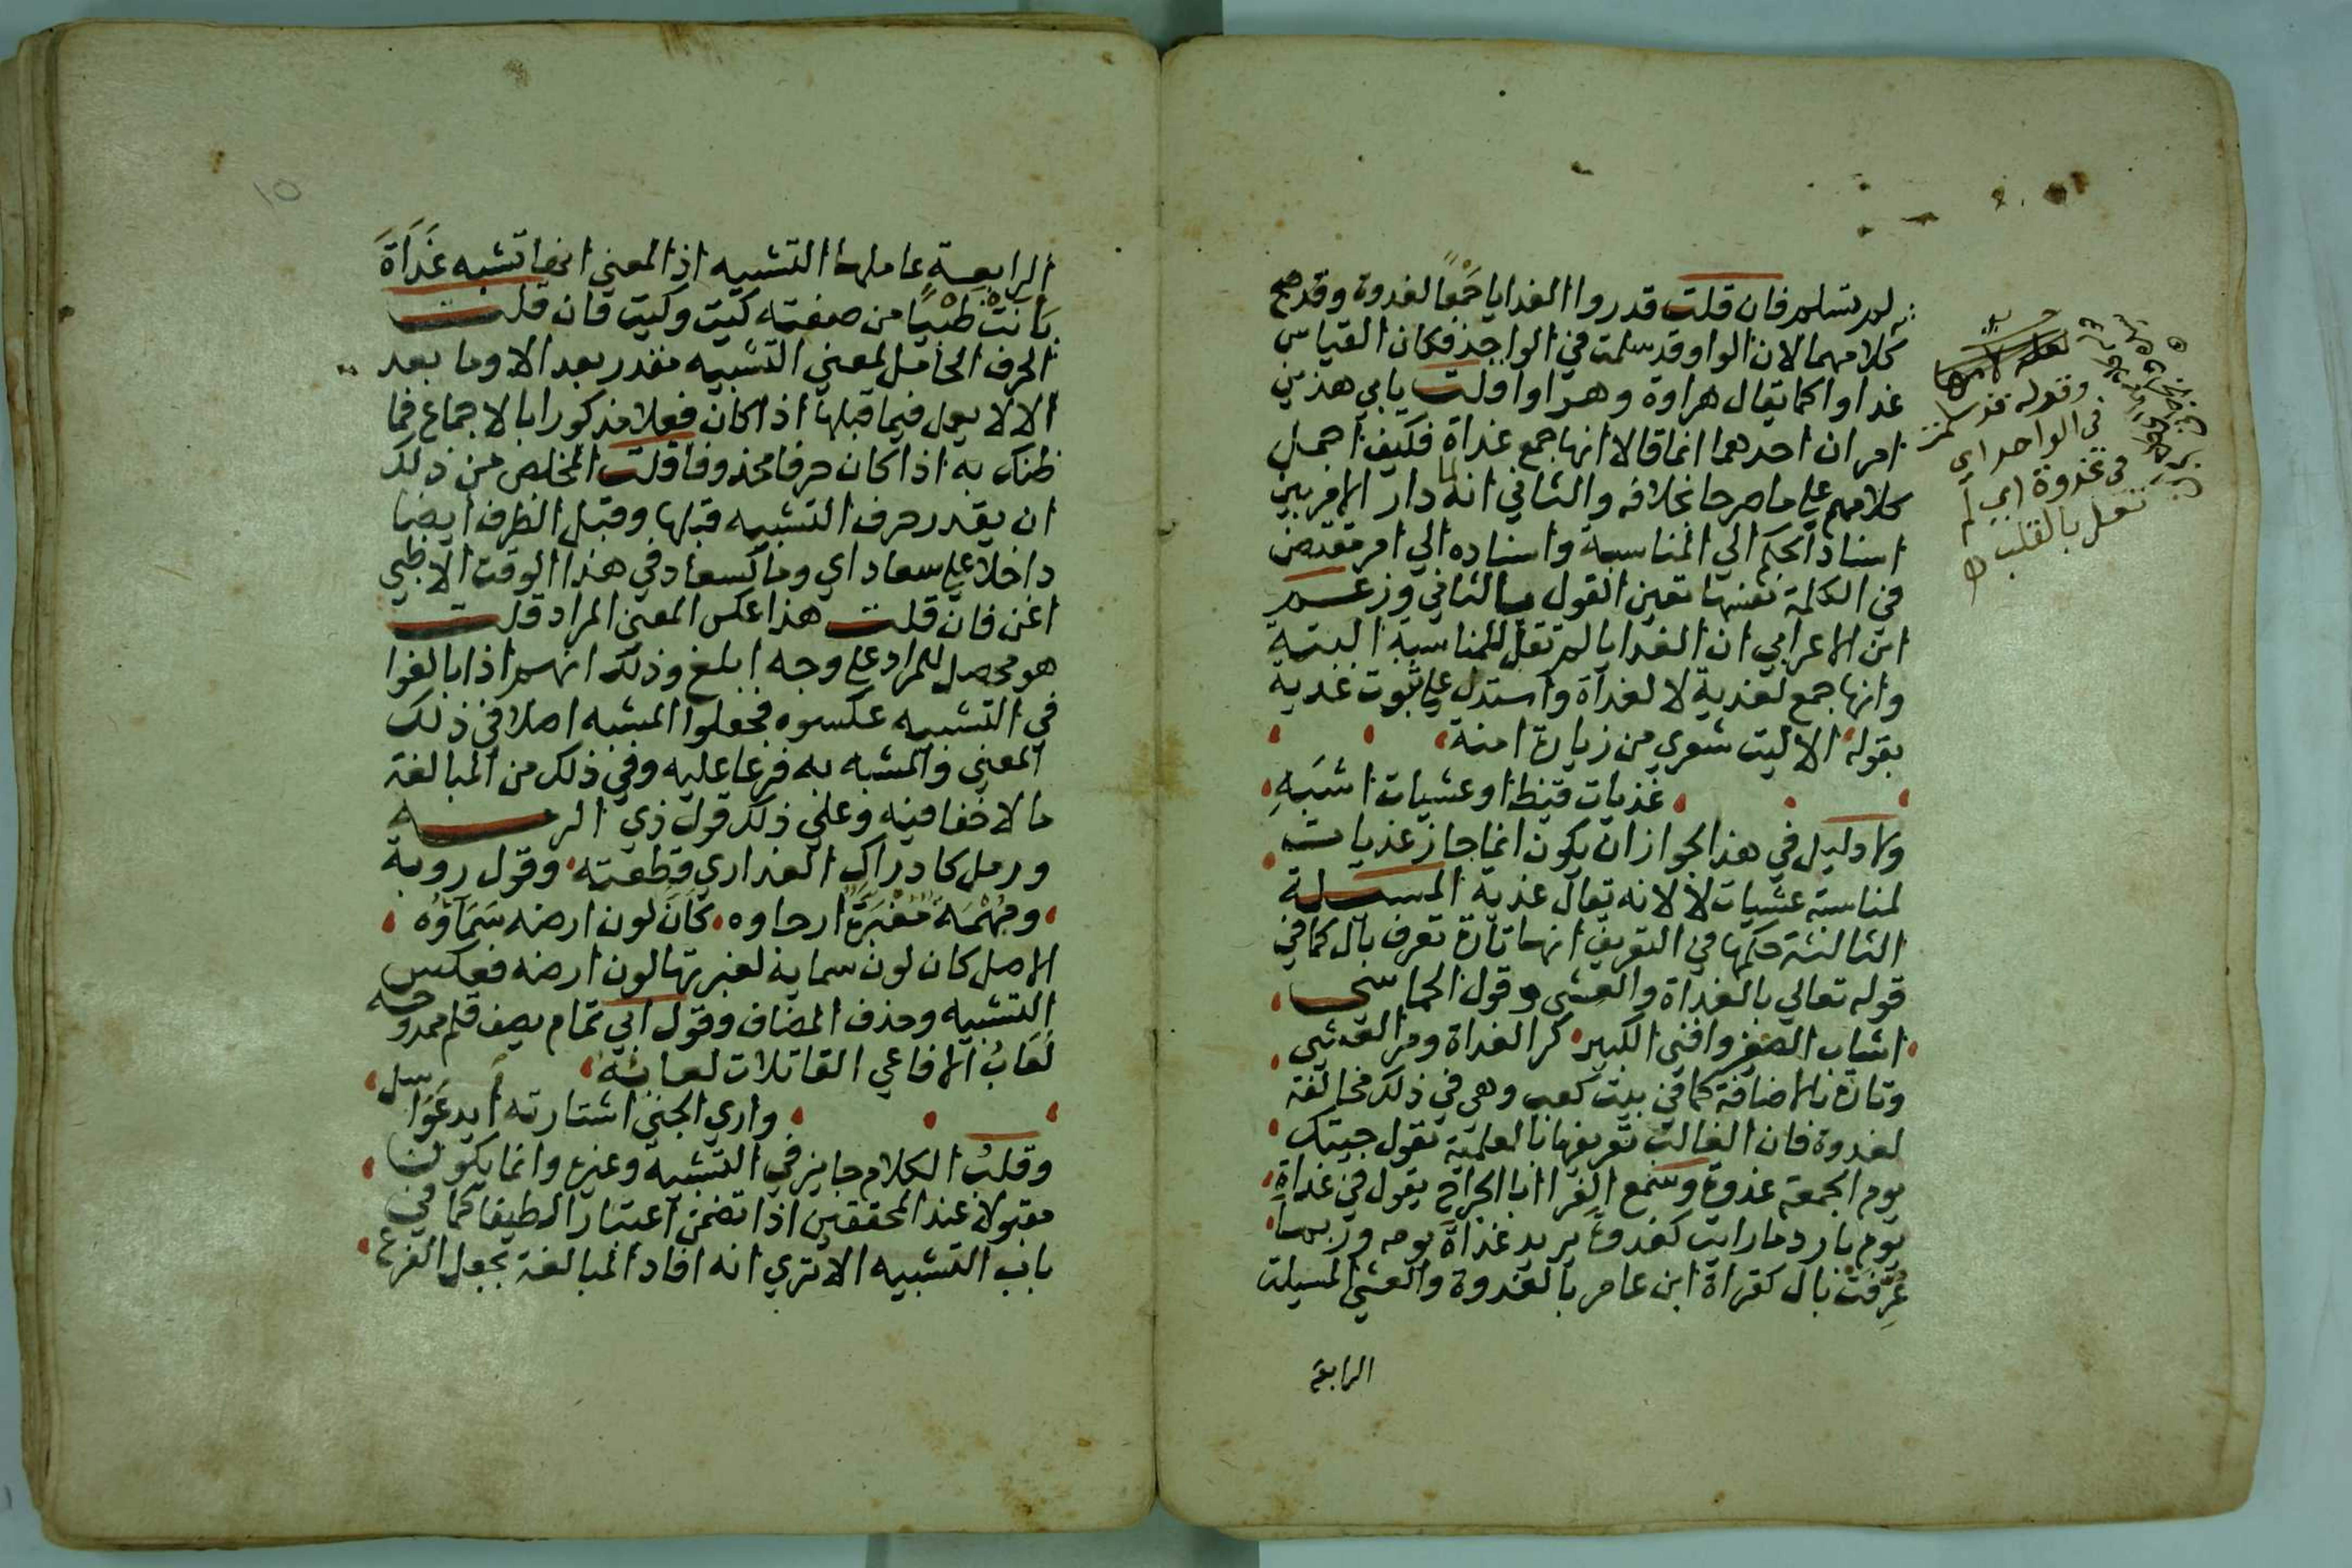 لم تسلم فان قلت قدروا الغدايا جمعا لغدوة وقد صح
كلامهما لان الواو قد سلمت في الواحد فكان القياس
غداوا كما يقال هراوة وهراوا قلت يابي هذين
امران احدهما انما قالا انها جمع غداة فكيف احمل
كلامهم علي ما صرحا بخلافه والثاني انه لما دار الامر بين
اسناد الحكم الي المناسبة واسناده الي امر مقتض
في الكلمة نفسها تعين القول بالثاني وزعم
ابن الاعرابي ان الغدايا لم تقل للمناسبة البتة
وانها جمع لغدية لا لغداة واستدل علي ثبوت غدية
بقوله الا ليت شعري من زيارة امنة
غديات قيظ او عشيات اشبه
ولا دليل في هذا لجواز ان يكون انما جاز غديات
لمناسبة عشيات لا لانه يقال غدية المسلة
الثالثة حكمها في التعريف انها تارة تعرف بال كما في
قوله تعالي بالغداة والعشي وقول الحماسي
اشاب الصغير وافني الكبير كر الغداة ومر العشي
وتارة بالاضافة كما في بيت كعب وهي في ذلك مخالفة
لغدوة فان الغالب تعريفها بالعلمية تقول جيتك
يوم الجمعة غدوة وسمع الفرا ابا الجراح يقول في غداة
يوم بارد ما رايت كغدوة يريد غداة يومه وربما
عرفت بال كقراة ابن عامر بالغدوة والعشي المسيلة
الرابعة
وقوله قد سلمت
في الواحد اي
في غدوة اي لم
تعل بالقلب
١٥
الرابعة عاملها التشبيه اذ المعني انها تشبه غداة
بانت ظبيا من صفته كيت وكيت فان قلت
الحرف الحامل لمعني التشبيه مقدر بعد الا وما بعد
الا لا يعمل فيما قبلها اذا كان فعلا مذكورا بالاجماع فما
ظنك به اذا كان حرفا محذوفا قلت المخلص من ذلك
ان يقدر حرف التشبيه قبلها وقبل الظرف ايضا
داخلا علي سعاد اي وما كسعاد في هذا الوقت الا ظبي
اغن فان قلت هذا عكس المعني المراد قلت
هو محصل للمراد علي وجه ابلغ وذلك انهم اذا بالغوا
في التشبيه عكسوه فجعلوا المشبه اصلا في ذلك
المعني والمشبه به فرعا عليه وفي ذلك من المبالغة
ما لا خفا فيه وعلي ذلك قول ذي الرمه
ورمل كاوراك العذاري قطعته وقول روبة
ومهمه مغبرة ارجاوه كان لون ارضه سماوه
الاصل كان لون سمايه لغبرتها لون ارضه فعكس
التشبيه وحذف المضاف وقول ابي تمام يصف قلم ممدوحه
لعاب الافاعي القاتلات لعابه
واري الجني اشتارته ايد عواسل
وقلب الكلام جايز في التشبيه وغيره وانما يكون
مقبولا عند المحققين اذا تضمن اعتبارا لطيفا كما في
باب التشبيه الا تري انه افاد المبالغة بجعل الفرع